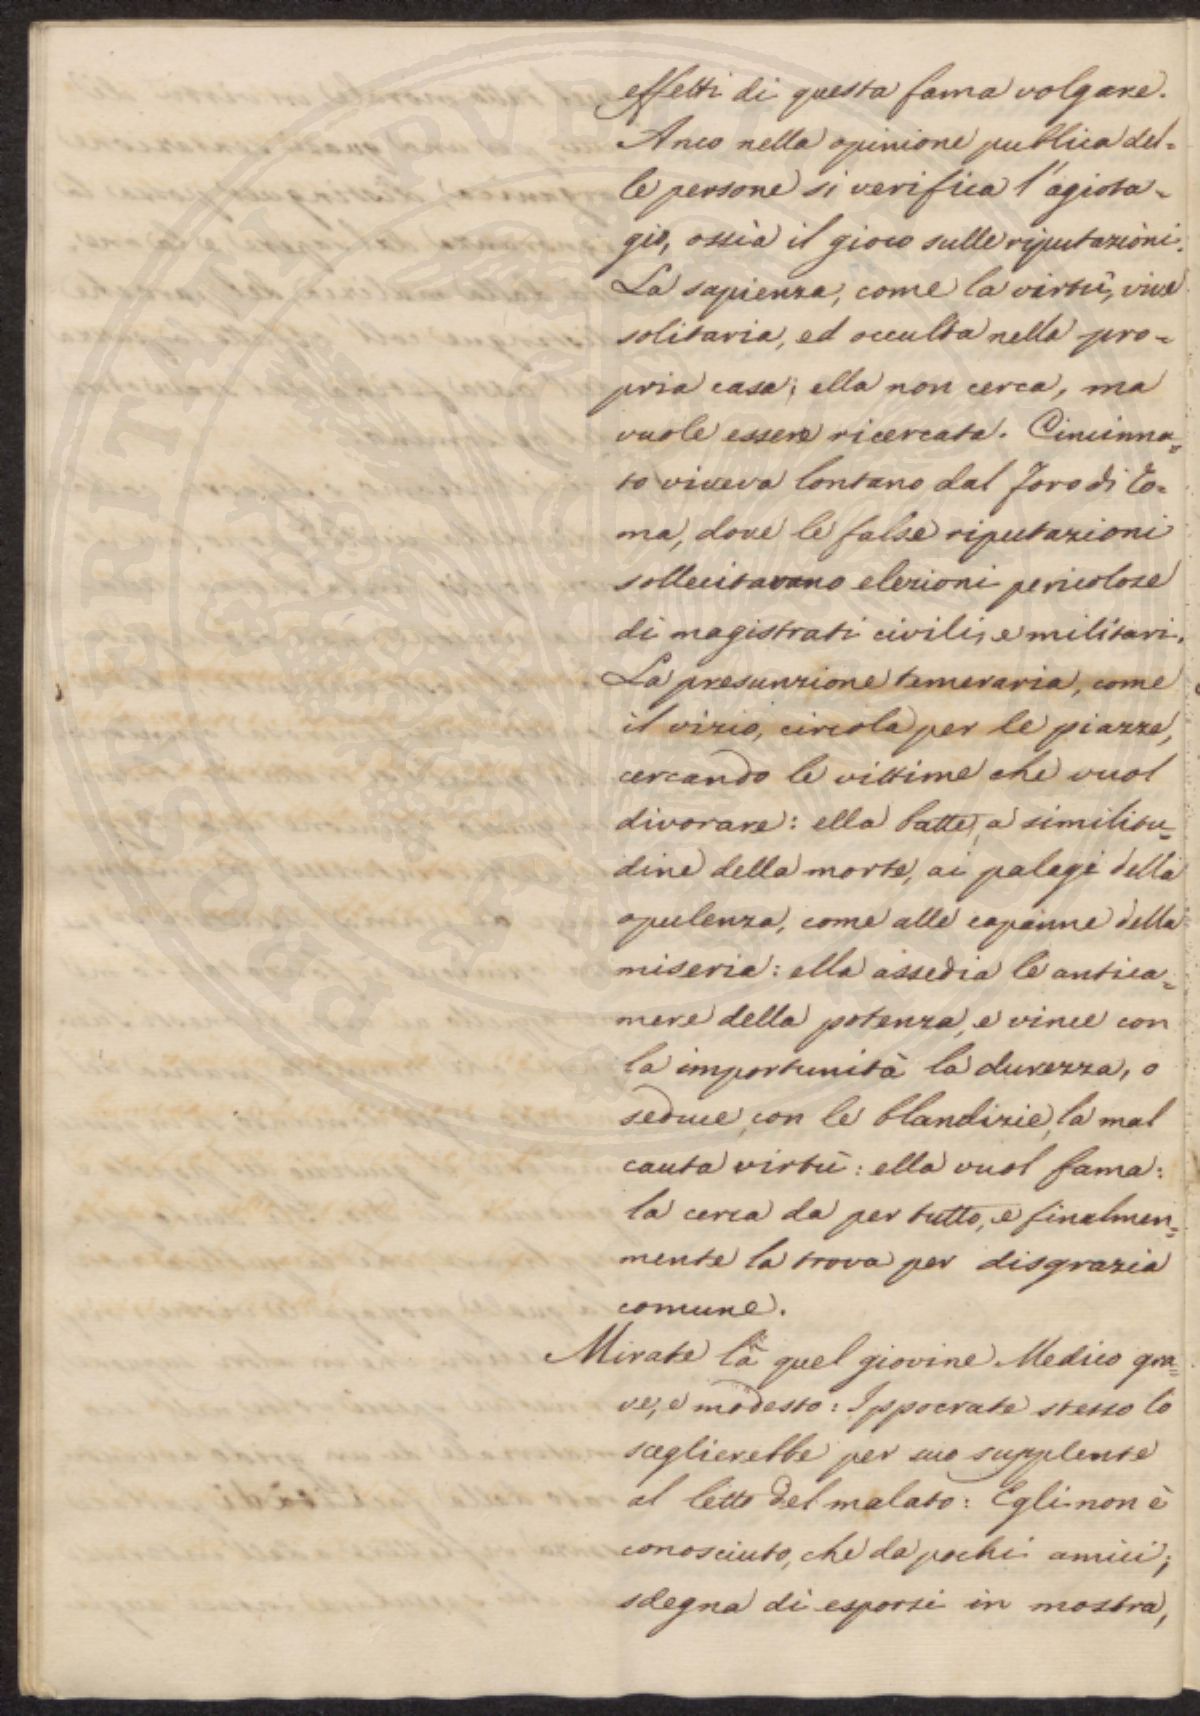 effetti di questa fama volgare.
Anco nella opinione publica del=
le persone si verifica l'agiota=
gio, ossia il gioco sulle riputazioni.
La sapienza, come la virtù, vive
solitaria, ed occulta nella pro=
pria casa; ella non cerca, ma
vuole essere ricercata. Cincinna=
to viveva lontano dal Foro di Ro=
ma, dove le false riputazioni
sollecitavano elezioni pericolose
di magistrati civili, e militari.
La presunzione temeraria, come
il vizio, circola per le piazze,
cercando le vittime che vuol
divorare: ella batte, a similitu=
dine della morte, ai palagi della
opulenza, come alle capanne della
miseria: ella assedia le antica=
mere della potenza, e vince con
la importunità la durezza, o
seduce, con le blandizie, la mal
cauta virtù: ella vuol fama:
la cerca da per tutto, e finalmen=
mente la trova per disgrazia
comune.
Mirate là quel giovine Medico gra=
ve, e modesto: Ippocrate stesso lo
sceglierebbe per suo supplente
al letto del malato: Egli non è
conosciuto, che da pochi amici;
sdegna di esporsi in mostra,